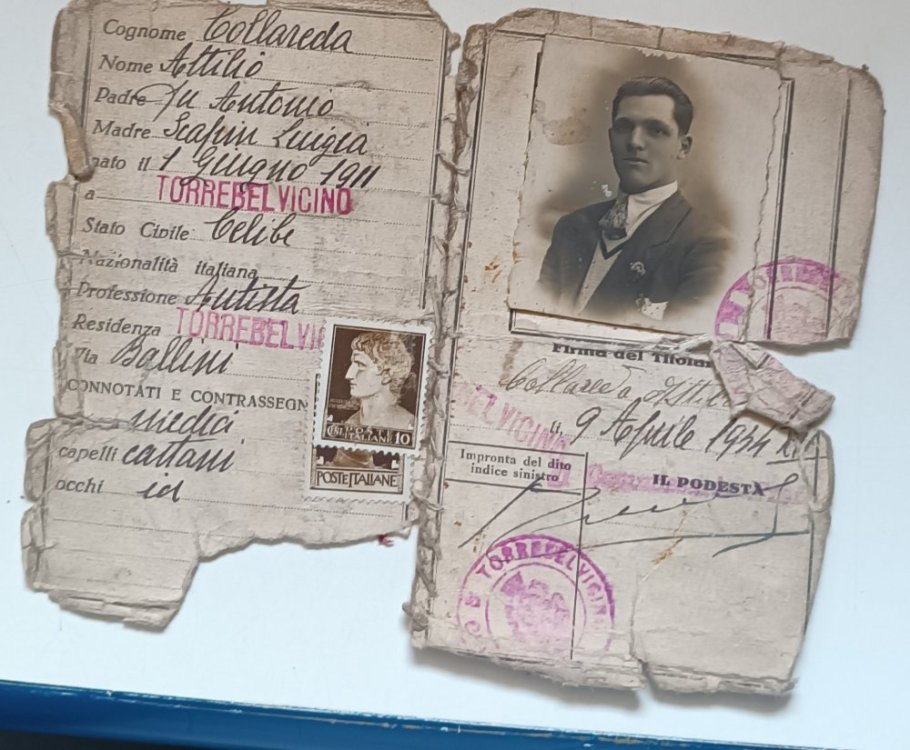 Cognome Collareda
Nome Attilio
Padre fu Antonio
Madre Scapin Luigia
nato il 1 Giugno 1911
a TORREBELVICINO
Stato Civile Celibe
Nazionalità italiana
Professione Autista
Residenza TORREBELVI
Via Bollini
CONNOTATI E CONTRASSEGN
medici
capelli castani
occhi id
POSTE
ITALIANE 10
POSTE ITALIANE
TORREBE
Firma del Titola
Collareda Atti
BELVICINO
li, 9 Aprile 1934 XII
Impronta del dito
indice sinistro
IL PODESTÀ
TORREBELVICIN